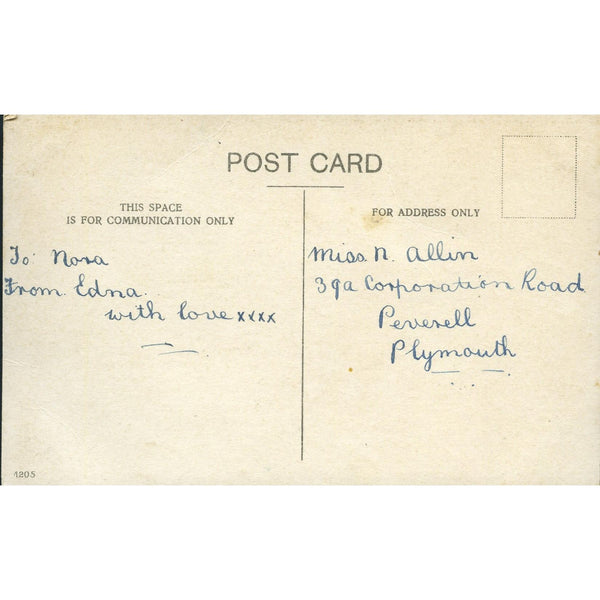 POST CARD
THIS SPACE
IS FOR COMMUNICATION ONLY
FOR ADDRESS ONLY
To: Nora
From Edna.
with love xxxx
Miss N. Allin
39a Corporation Road
Peverell
Plymouth
1205